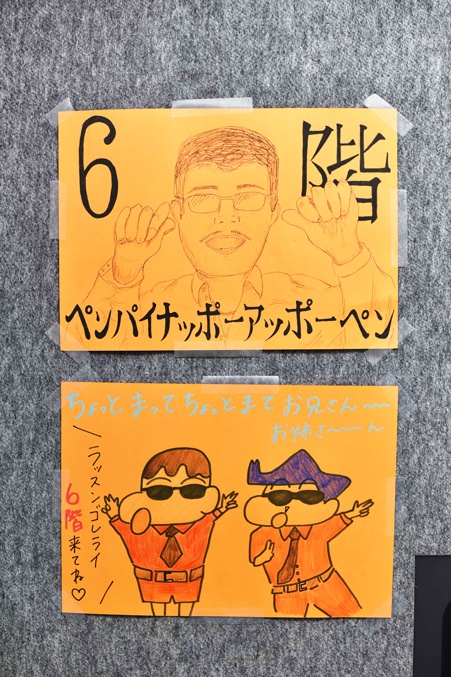 6 階
ペンパイナッポーアッポーペン
ちょっとまってちょっとまてお兄さん〜〜
お姉さ〜〜ん
ラッスンゴレライ
6階来てね♡